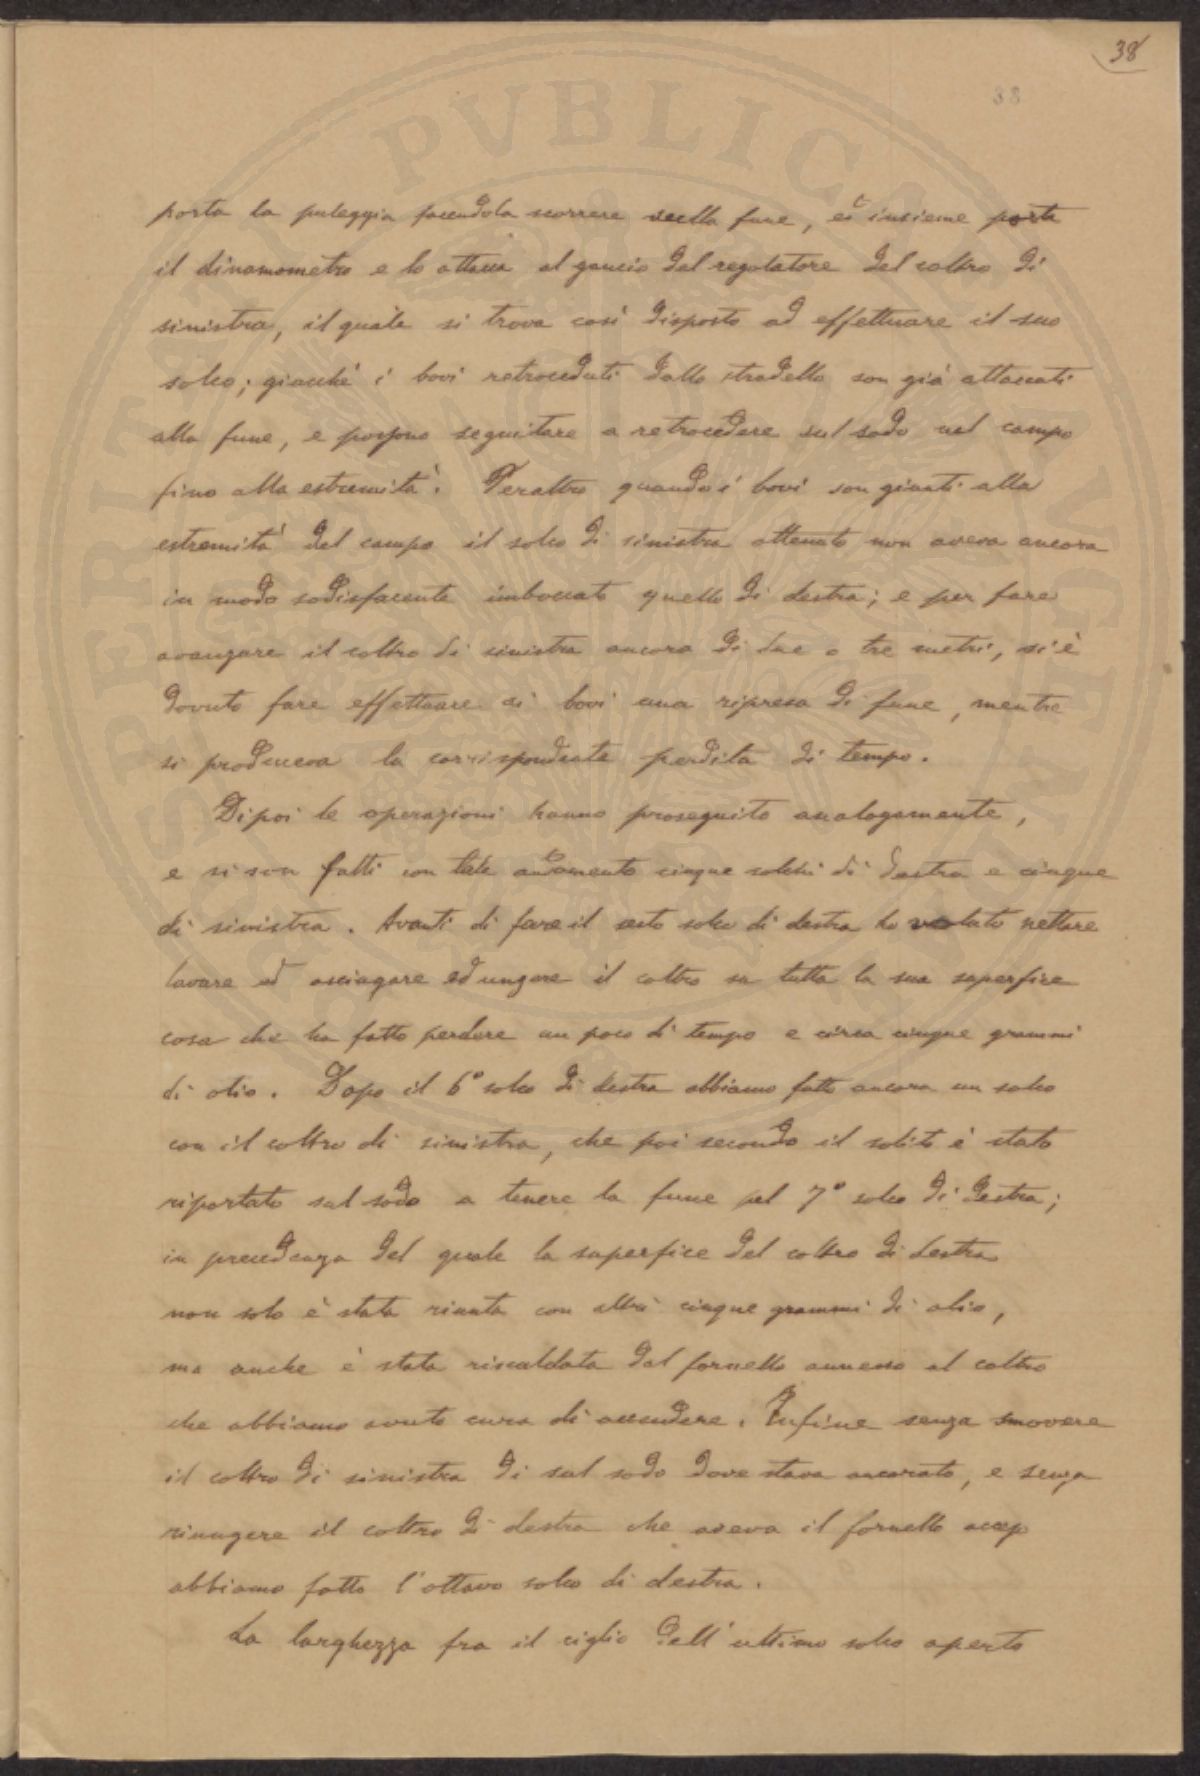 38
38
porta la puleggia facendola scorrere sulla fune, ed insieme porta
il dinamometro e lo attacca al gancio del regolatore del coltro di
sinistra, il quale si trova così disposto ad effettuare il suo
solco; giacché i bovi retroceduti dallo stradello son già attaccati
alla fune, e possono seguitare a retrocedere sul sodo nel campo
fino alla estremità. Peraltro quando i bovi son giunti alla
estremità del campo il solco di sinistra ottenuto non aveva ancora
in modo sodisfacente imboccato quello di destra; e per fare
avanzare il coltro di sinistra ancora di due o tre metri, si è
dovuto fare effettuare ai bovi una ripresa di fune, mentre
si produceva la corrispondente perdita di tempo.
Dipoi le operazioni hanno proseguito analogamente,
e si son fatti con tale andamento cinque solchi di destra e cinque
di sinistra. Avanti di fare il sesto solco di destra ho voluto nettare
lavare ed asciagare ed ungere il coltro su tutta la sua superfice
cosa che ha fatto perdere un poco di tempo e circa cinque grammi
di olio. Dopo il 6° solco di destra abbiamo fatto ancora un solco
con il coltro di sinistra, che poi secondo il solito è stato
riportato sul sodo a tenere la fune pel 7° solco di destra;
in precedenza del quale la superfice del coltro di destra
non solo è stata riunta con altri cinque grammi di olio,
ma anche è stata riscaldata dal fornello annesso al coltro
che abbiamo avuto cura di accendere. Infine senza smovere
il coltro di sinistra di sul sodo dove stava ancorato, e senza
riungere il coltro di destra che aveva il fornello acceso
abbiamo fatto l'ottavo solco di destra.
La larghezza fra il ciglio dell'ultimo solco aperto